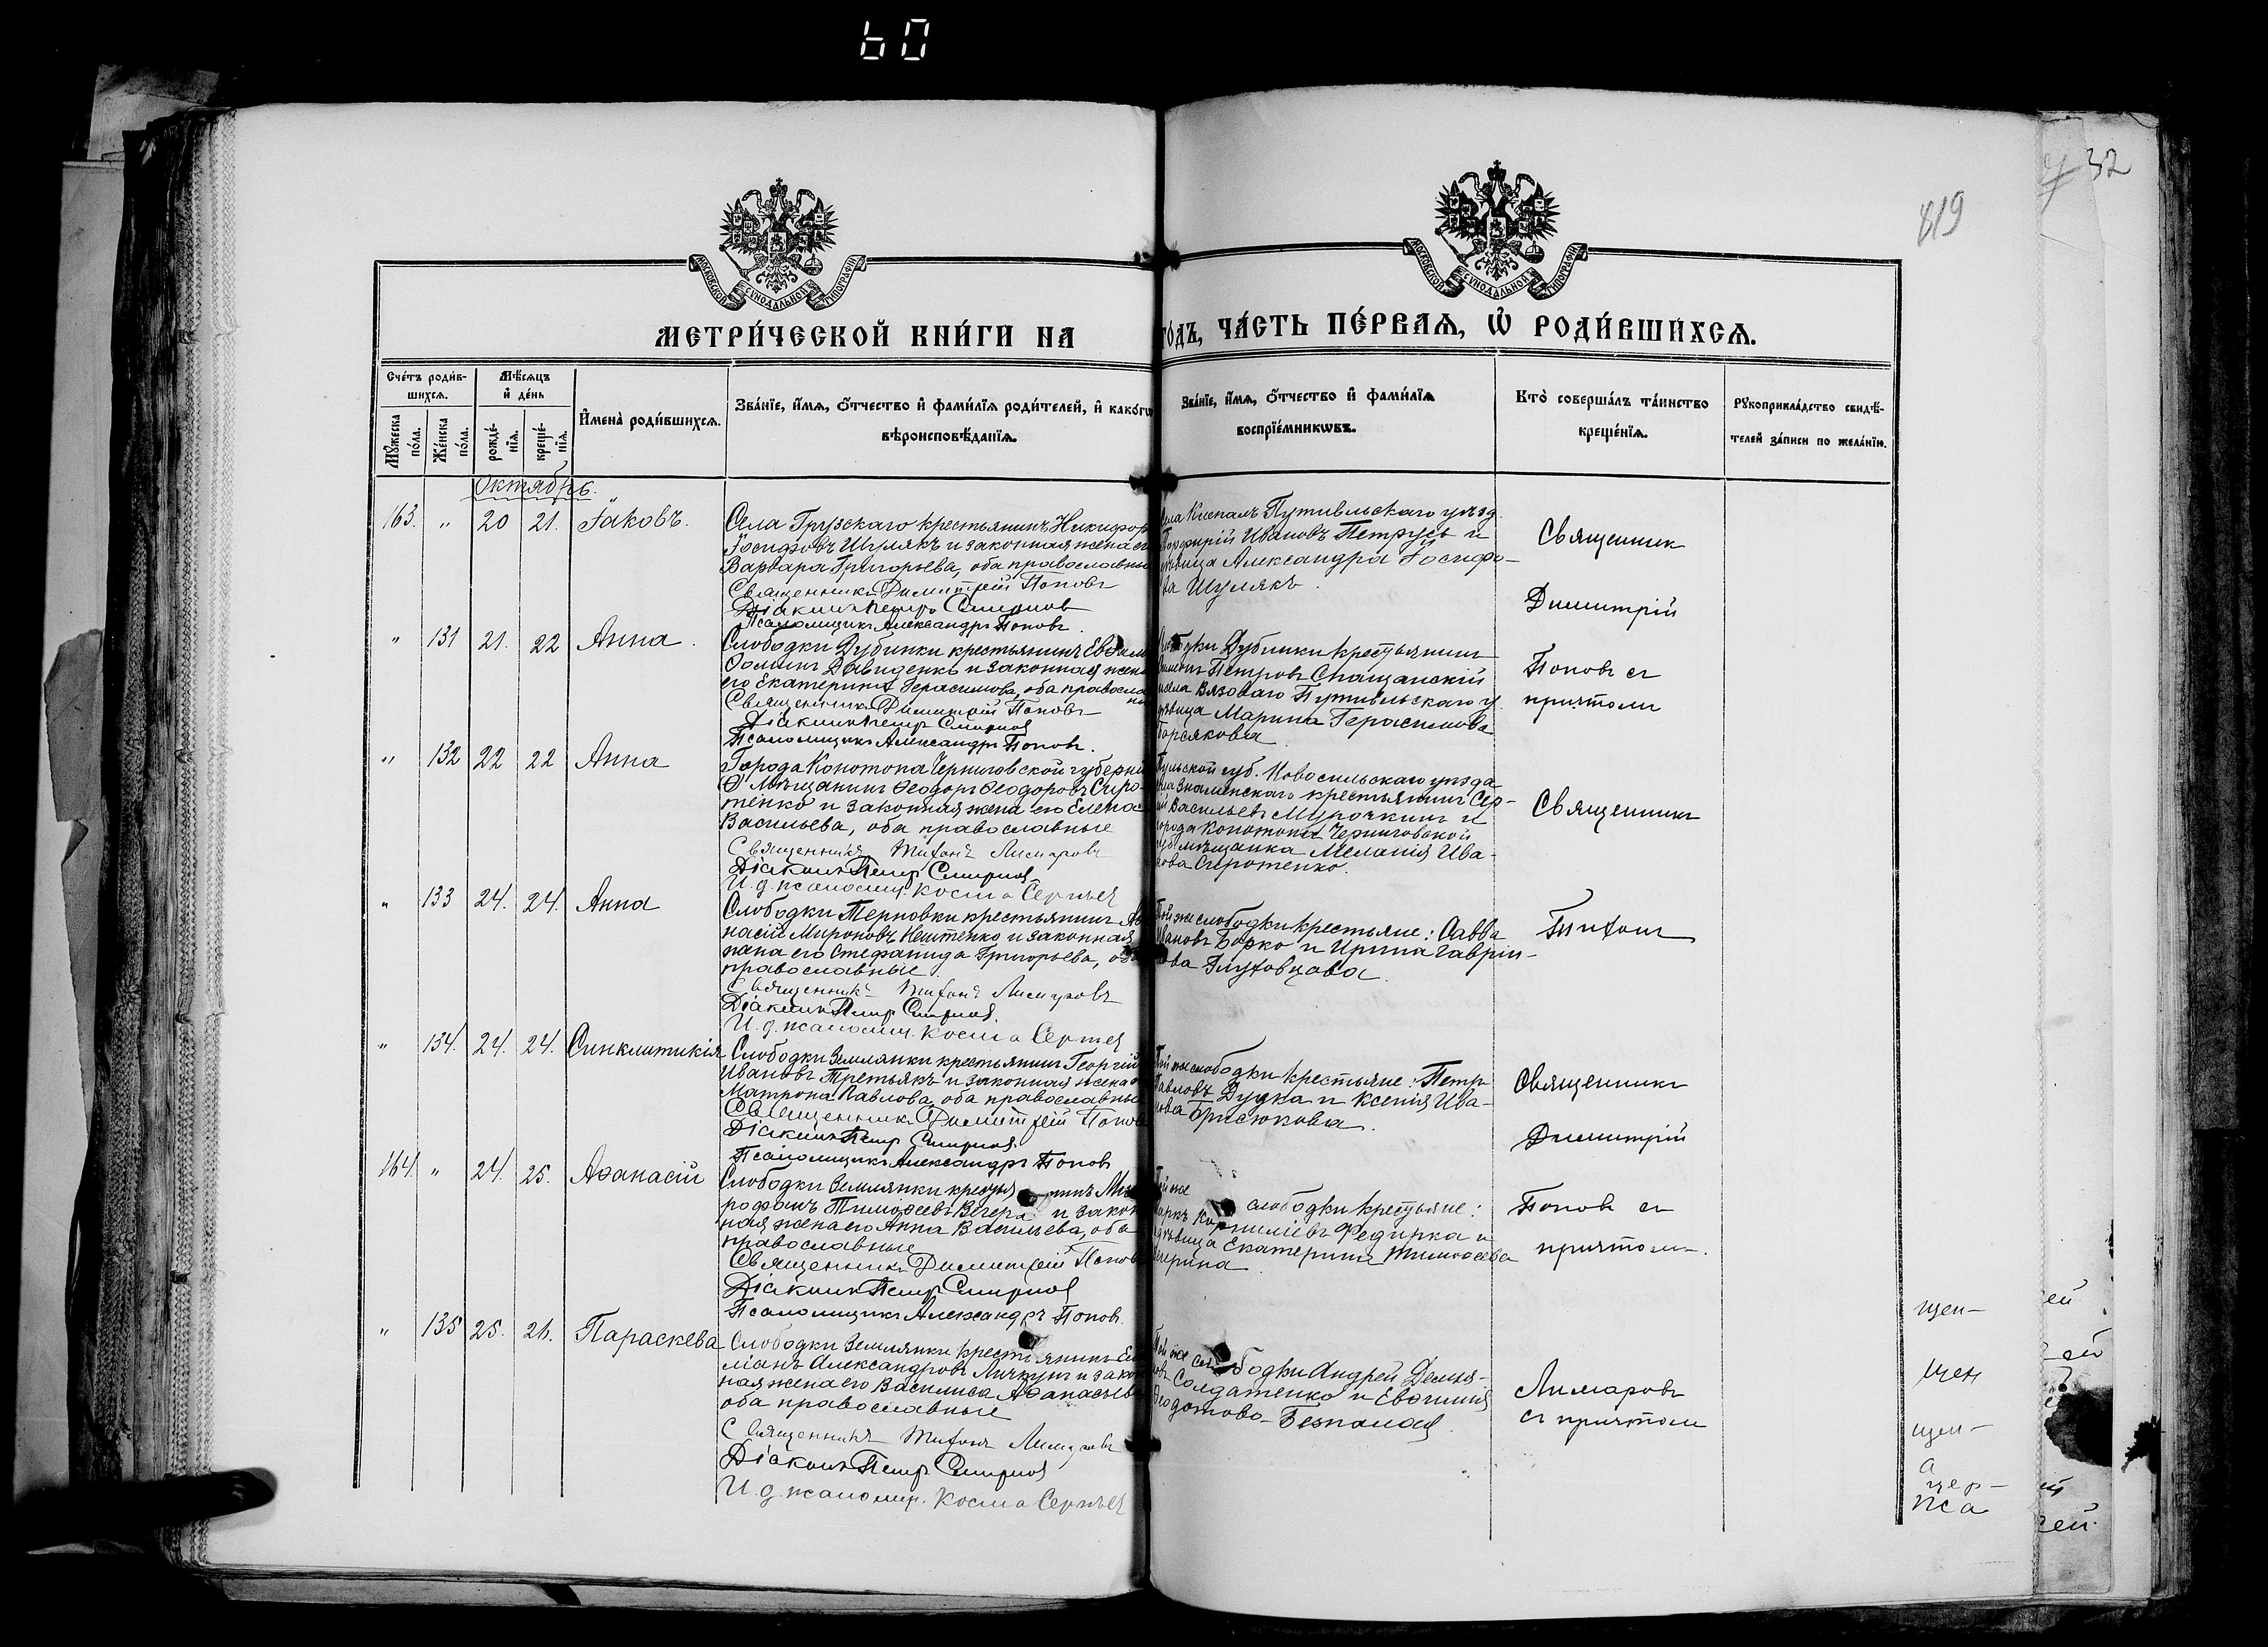 60
819
32
МОСКОВСКОЙ СУНОДАЛЬНОЙ ТИПОГРАФІИ
МОСКОВСКОЙ СУНОДАЛЬНОЙ ТИПОГРАФІИ
МЕТРИ́ЧЕСКОЙ КНИ́ГИ НА
ГО́ДЪ, ЧА́СТЬ ПЕ́РВАѦ, Ѡ҆ РОДИ́ВШИХСѦ.
Сче́тъ роди́в-
шихсѧ.
Мѣ́сѧцъ
и҆ де́нь
Мꙋ́жеска
по́ла.
Же́нска
по́ла.
рожде́-
нїѧ.
креще́-
нїѧ.
И҆мена̀ роди́вшихсѧ.
Зва́нїе, и҆́мѧ, ѻ҆́тчество и҆ фами́лїѧ роди́телей, и҆ како́гѡ
вѣроисповѣ́данїѧ.
Зва́нїе, и҆́мѧ, ѻ҆́тчество и҆ фами́лїѧ
воспрїе́мникѡвъ.
Кто̀ соверша́лъ та́инство
креще́нїѧ.
Рꙋкоприкла́дство свидѣ́-
телей за́писи по жела́нїю.
Октябрь.
163. " 20 21. Іаковъ.
Села Грузскаго крестьянинъ Никифор
Іосифовъ Шулякъ и законная жена ег
Варвара Григорьева, оба православны
Священникъ Димитрій Поповъ
Діаконъ Петръ Смирнов
Псаломщикъ Александръ Поповъ.
Порфирій Ивановъ Петрусь и
дѣвица Александра Іосифо-
ва Шулякъ.
Священник
Димитрій
" 131 21. 22 Анна.
Слободки Дубинки крестьянинъ Евѳим
Ѳоминъ Давиденко и законная жена
его Екатерина Герасимова, оба правосла
Священникъ Димитрій Поповъ
Діаконъ Петръ Смирнов
Псаломщикъ Александръ Поповъ.
Слободки Дубинки крестьянинъ
Петровъ Спащанскій
села Вязоваго Путивльскаго у.
дѣвица Марина Герасимова
Поповъ съ
причтомъ
" 132 22 22 Анна
Города Конотопа Черниговской губерні
мѣщанинъ Ѳеодоръ Ѳеодоровъ Сиро-
тенко и законная жена его Елена
Васильева, оба православные
Священникъ Тихонъ Лимаровъ
Діаконъ Петръ Смирнов
И. д. псаломщ. Косма Сергѣев
Тульской губ. Новосильскаго уѣзда
села Знаменскаго крестьянинъ Сер-
гій Васильевъ Мурочкинъ и
города Конотопа Черниговской
губ. мѣщанка Меланія Ива-
нова Сиротенко.
Священникъ
" 133 24. 24. Анна
Слободки Терновки крестьянинъ Аѳ
насій Мироновъ Нештенко и законная
жена его Стефанида Григорьева, оба
православные.
Священникъ Тихонъ Лимаровъ
Діаконъ Петръ Смирнов.
И. д. псаломщ. Косма Сергѣев
Той же слободки крестьяне: Савва
Ивановъ Борко и Ирина Гаврии-
лова Глуховцова.
Тихонъ
" 134. 24. 24. Синклитикія
Слободки Землянки крестьянинъ Георгій
Ивановъ Третьякъ и законная жена е
Матрона Павлова, оба православны
Священникъ Димитрій Попов
Діаконъ Петръ Смирнов.
Псаломщикъ Александръ Поповъ
Той же слободки крестьяне: Петръ
Павловъ Дудка и Ксенія Ива-
нова Брисюкова.
Священникъ
Димитрій
164. " 24. 25. Аѳанасій
Слободки Землянки кресть янинъ Мит
рофанъ Тимоѳеевъ Вечера и закон
ная жена его Анна Васильева, оба
православные
Священникъ Димитрій Попов
Діаконъ Петръ Смирнов
Псаломщикъ Александръ Поповъ.
Той же слободки крестьяне:
Маркъ Корниліевъ Федирка и
дѣвица Екатерина Тимоѳеева
Вечерина
Поповъ съ
причтомъ.
" 135 25. 26. Параскева
Слободки Землянки крестьянинъ Ем
ліанъ Александровъ Личкунъ и закон
ная жена его Василиса Аѳанасьева
оба православные
Священникъ Тихонъ Лимаровъ
Діаконъ Петръ Смирнов
И. д. псаломщ. Косма Сергѣев
Той же слободки Андрей Демья-
новъ Солдатенко и Евѳимія
Ѳеодотова Безпалая.
Лимаровъ
съ причтомъ
щен-
щен
щен-
а
чер-
пса
ей
ей
сей